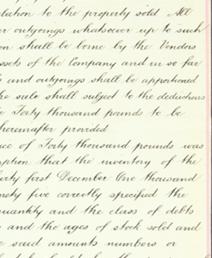 relation to the property sold All
r outgoings whatsoever up to such
on shall be borne by the Vendors
ssets of the Company and in so far
s and outgoings shall be apportioned
he sale shall subject to the deductions
e Forty thousand pounds to be
hereinafter provided
nce of Forty thousand pounds was
ption that the inventory of the
irty first December One thousand
nety five correctly specified the
uantity and the class of debts
s and the ages of stock sold and
e said amounts numbers or